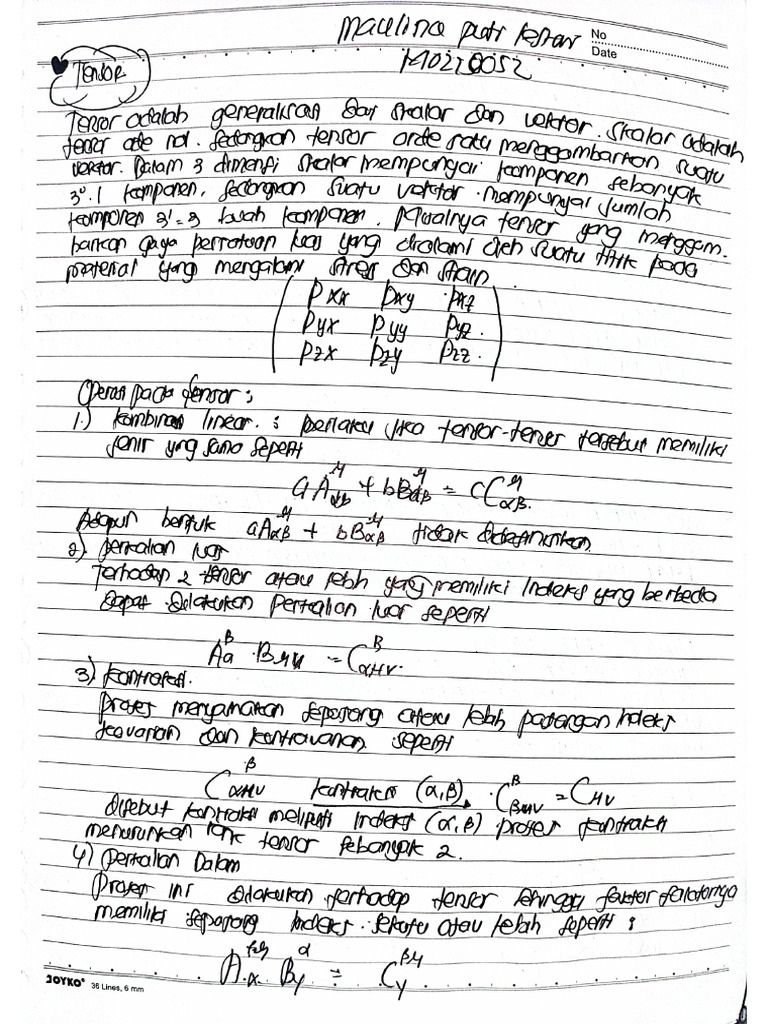 Maulina putri lestari
No
Date
M0220052
Tensor
Tensor adalah generalisasi dari skalar dan vektor. Skalar adalah
tensor orde nol. Sedangkan tensor orde satu menggambarkan suatu
vektor. Dalam 3 dimensi skalar mempunyai komponen sebanyak
3⁰.1 komponen, sedangkan suatu vektor mempunyai jumlah
komponen 3¹=3 buah komponen. Misalnya tensor yang menggam-
barkan gaya persatuan luas yang dialami oleh suatu titik pada
material yang mengalami stres dan strain
Pxx Pxy Pxz
Pyx Pyy Pyz
Pzx Pzy Pzz
Operasi pada tensor ;
1.) kombinasi linear : berlaku jika tensor-tensor tersebut memiliki
jenis yng sama seperti
aA^μ_αβ + bB^μ_αβ = cC^μ_αβ.
Adapun bentuk aA^μ_αβ + bB^μ_αβ tidak didefinisikan
2) perkalian luar
Terhadap 2 tensor atau lebih yang memiliki indeks yang berbeda
dapat dilakukan perkalian luar seperti
A^β_α . B_μν = C^β_αμν.
3) kontraksi.
Proses menyamakan sepasang atau lebih pasangan indeks
kovarian dan kontravarian seperti
C^β_αμν kontraksi (α,β) . C^β_βμν = C_μν
disebut kontraksi meliputi indeks (α,β) proses kontraksi
menurunkan rank tensor sebanyak 2.
4) Perkalian Dalam
Proses ini dilakukan terhadap tensor sehingga faktor-faktornya
memiliki sepasang indeks sekutu atau lebih seperti :
A^βμ_α B^α_γ = C^βμ_γ
JOYKO® 36 Lines, 6 mm